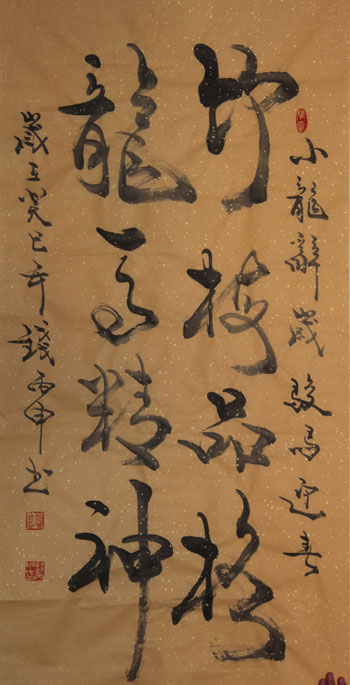 小龍辭歲駿馬迎春
竹枝品格
龍馬精神
歲在癸巳年錢丙申书